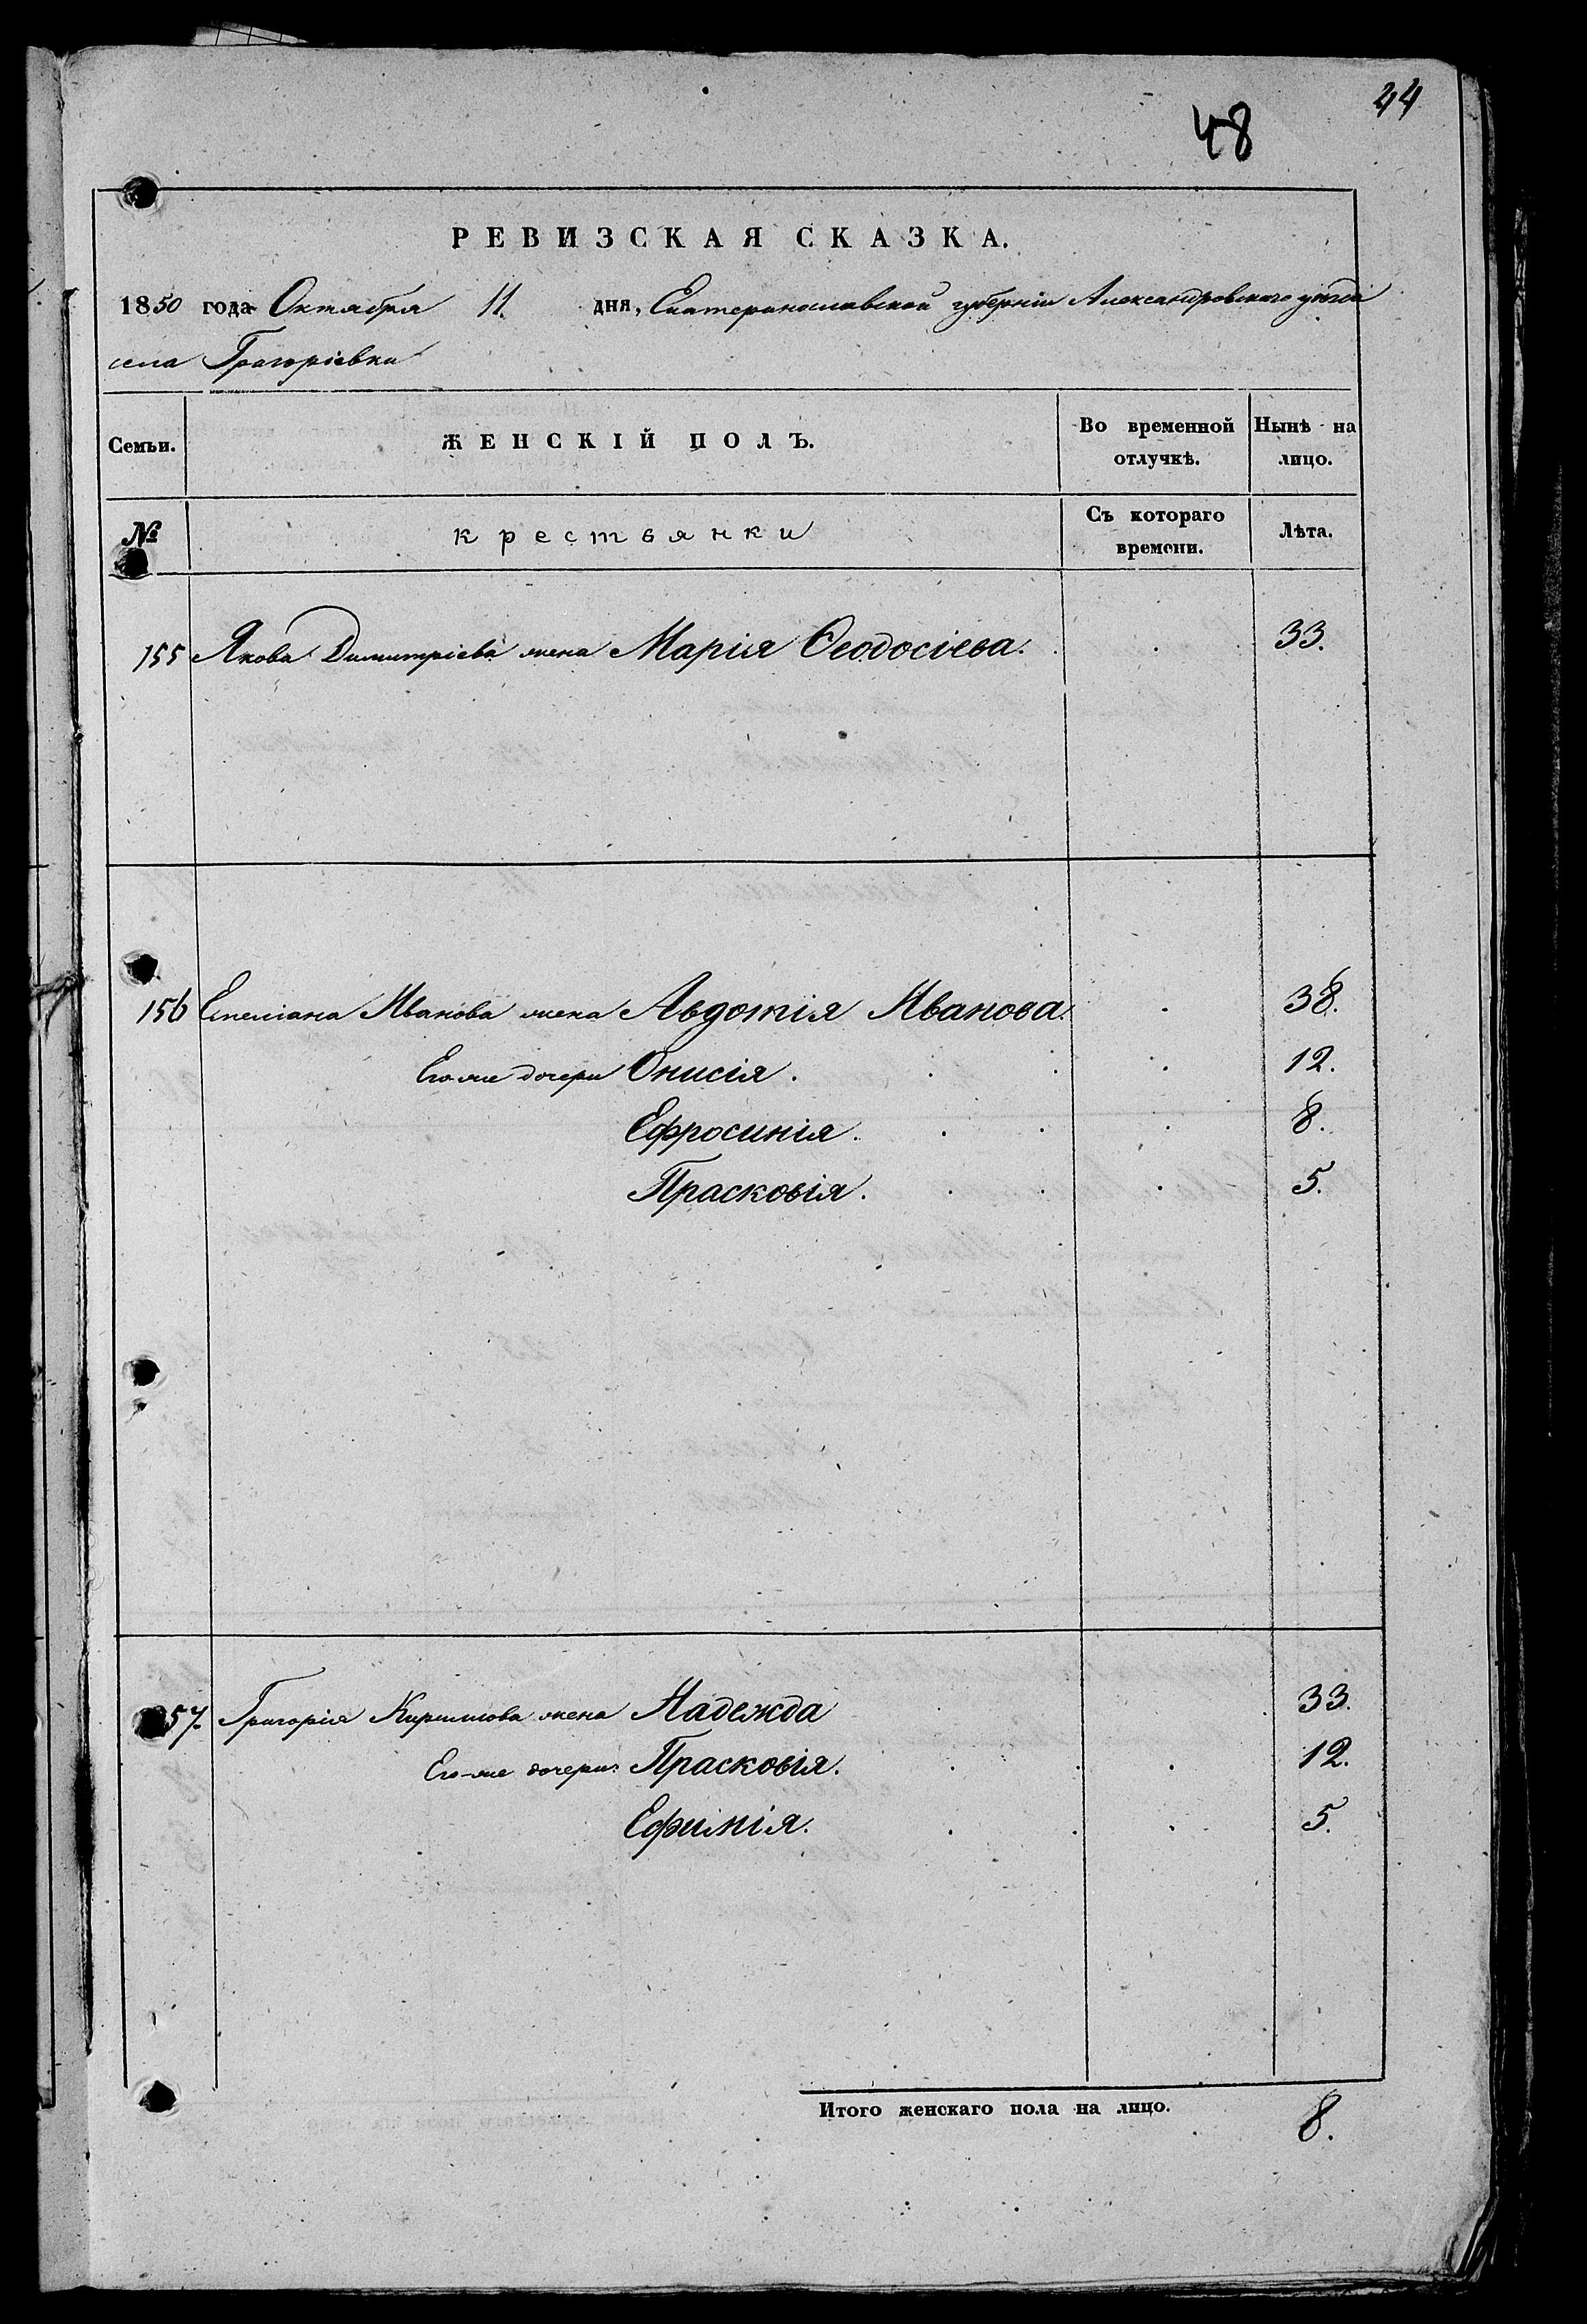 44
48
РЕВИЗСКАЯ СКАЗКА.
1850 года Октября 11. дня, Екатеринославской губерніи Александровского уѣзда
села Григоріевки
Семьи. ЖЕНСКІЙ ПОЛЪ. Во временной отлучкѣ. Нынѣ на лицо.
№ крестьянки Съ котораго времени. Лѣта.
155 Якова Димитріева жена Марія Ѳеодосіева. 33.
156 Емеліана Иванова жена Авдотія Иванова. 38.
Его же дочери Онисія. 12.
Ефросинія. 8.
Прасковія. 5.
157. Григорія Кирилова жена Надежда 33.
Его-же дочери: Прасковія. 12.
Ефимія. 5.
Итого женскаго пола на лицо. 8.